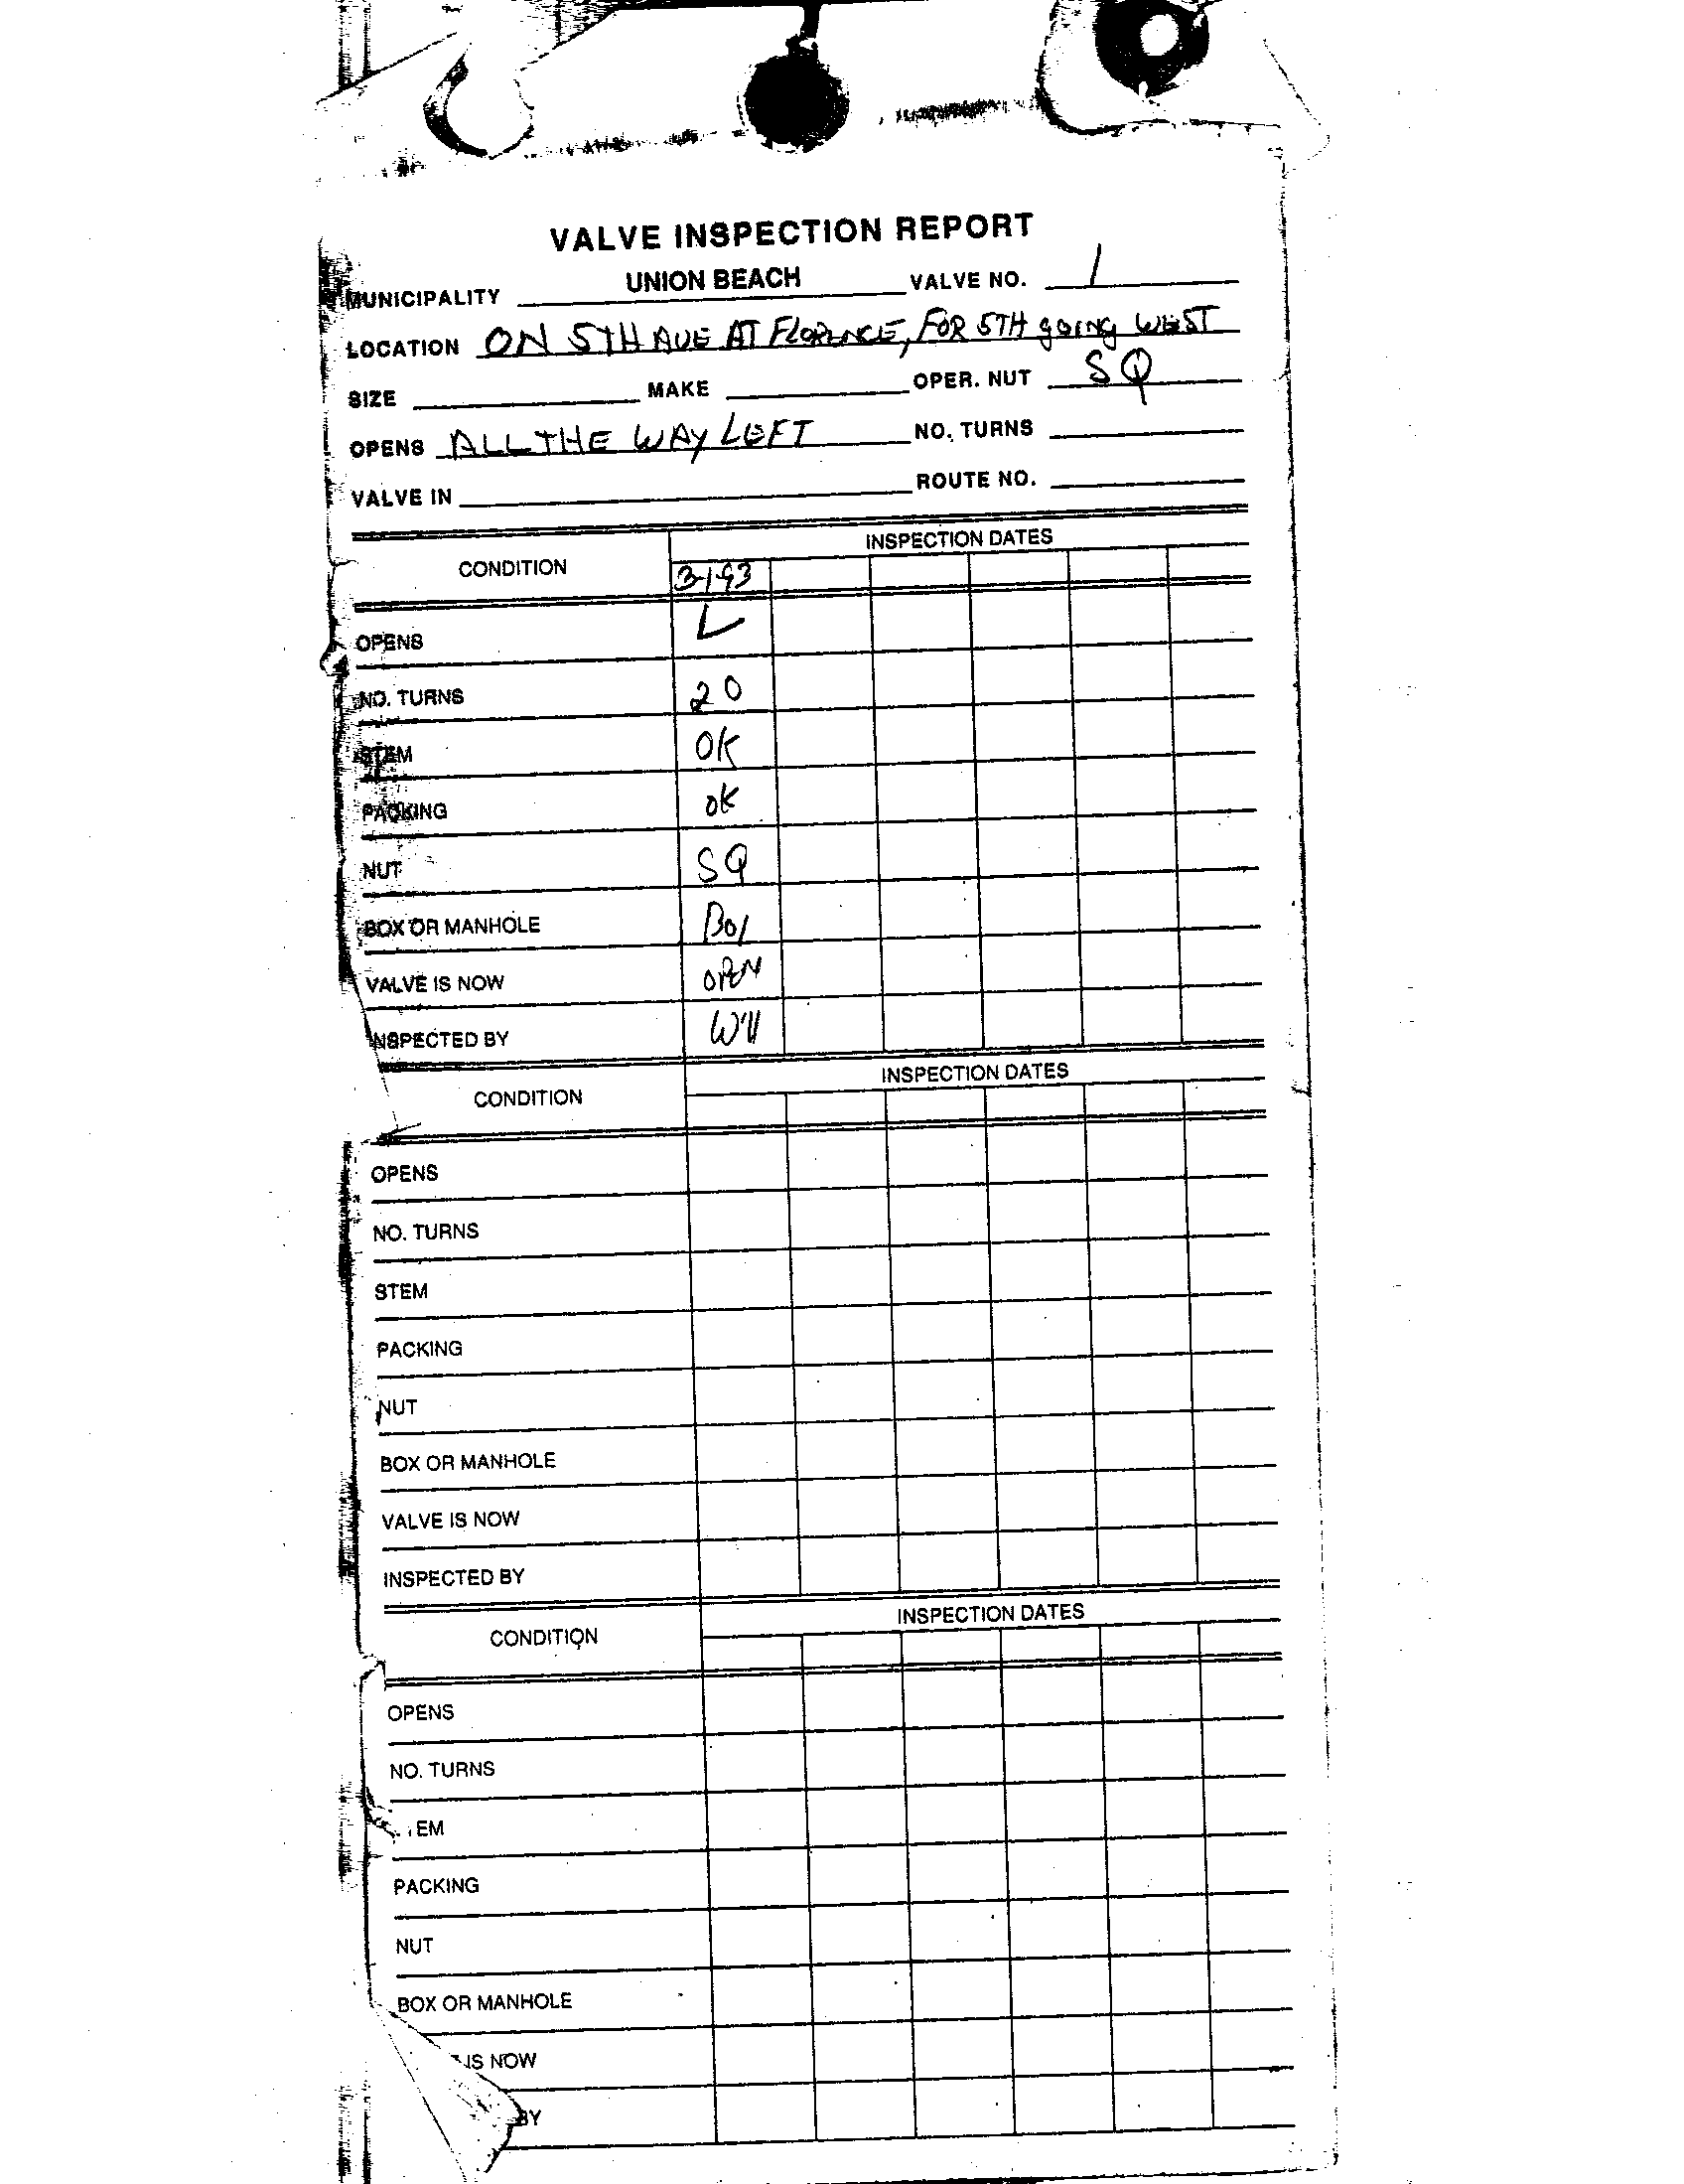 VALVE INSPECTION REPORT
MUNICIPALITY UNION BEACH VALVE NO. 1
LOCATION ON 5TH AVE AT FLORENCE, FOR 5TH gOING WEST
SIZE MAKE OPER. NUT SQ
OPENS ALL THE WAY LEFT NO. TURNS
VALVE IN ROUTE NO.
CONDITION INSPECTION DATES
3-1-93
OPENS L
NO. TURNS 20
STEM OK
PACKING OK
NUT SQ
BOX OR MANHOLE
VALVE IS NOW OPEN
INSPECTED BY
CONDITION INSPECTION DATES
OPENS
NO. TURNS
STEM
PACKING
NUT
BOX OR MANHOLE
VALVE IS NOW
INSPECTED BY
CONDITION INSPECTION DATES
OPENS
NO. TURNS
EM
PACKING
NUT
BOX OR MANHOLE
IS NOW
BY